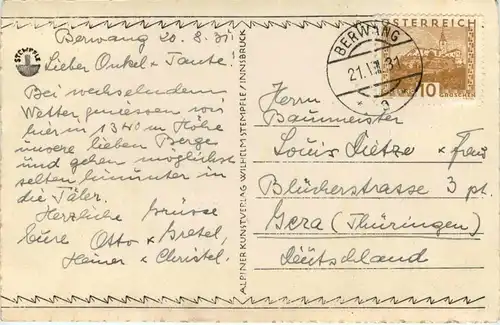 Berwang 20. 8. 31.
Lieber Onkel + Tante!
Bei wechselndem
Wetter geniessen wir
hier in 1340 m Höhe
unsere lieben Berge
und gehen möglichst
selten hinunter in
die Täler.
Herzliche Grüsse
Eure Otto + Gretel,
Heiner + Christel.
STEMPFLE
ALPINER KUNSTVERLAG WILHELM STEMPFLE / INNSBRUCK
BERWANG
21.VIII.31
a
ÖSTERREICH
10
GROSCHEN
Herrn
Baumeister
Louis Dietze + Frau
Blücherstrasse 3 pt.
Gera (Thüringen)
Deutschland